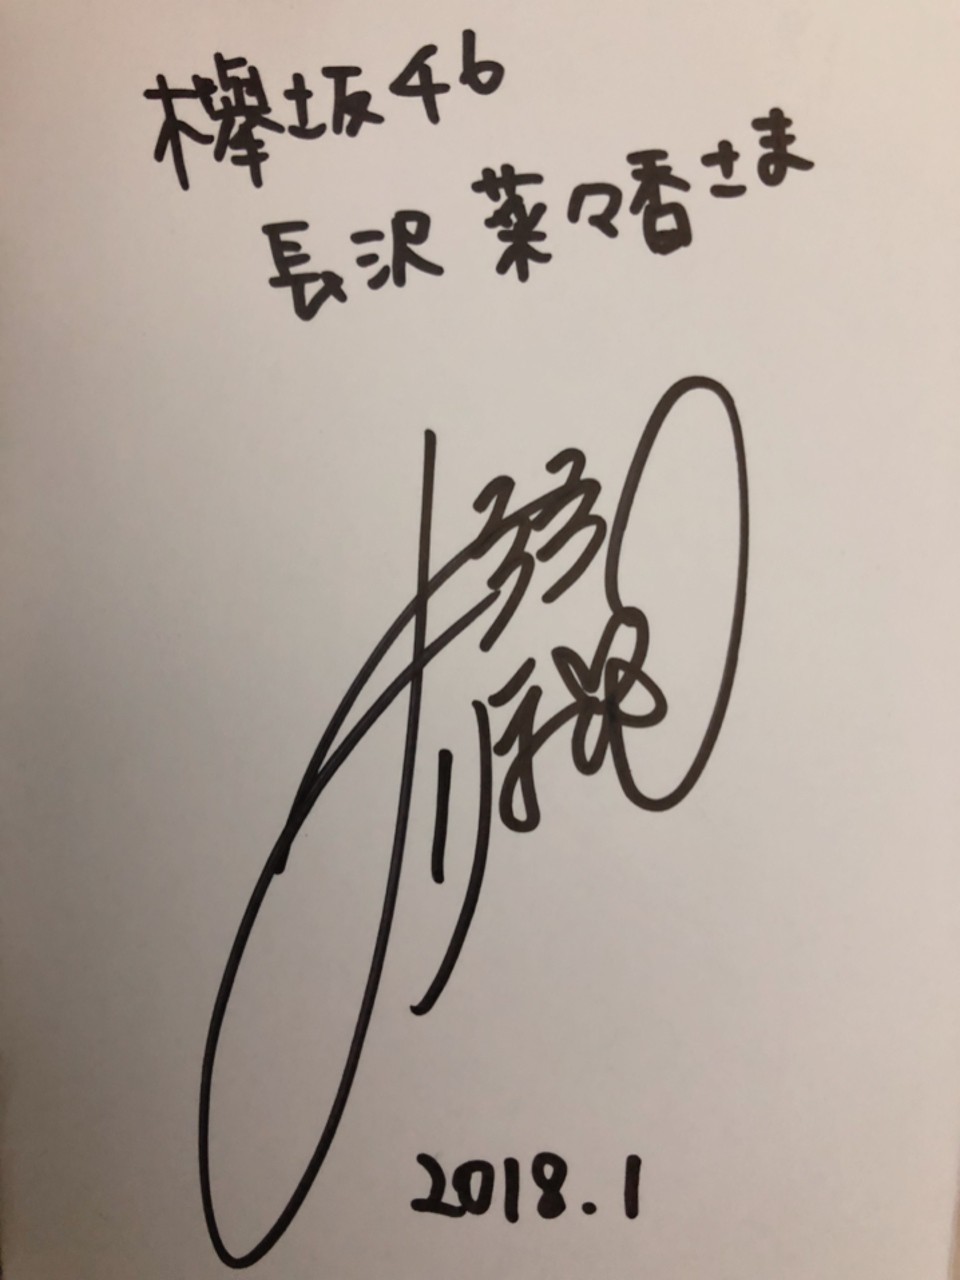 欅坂46
長沢菜々香さま
2018.1